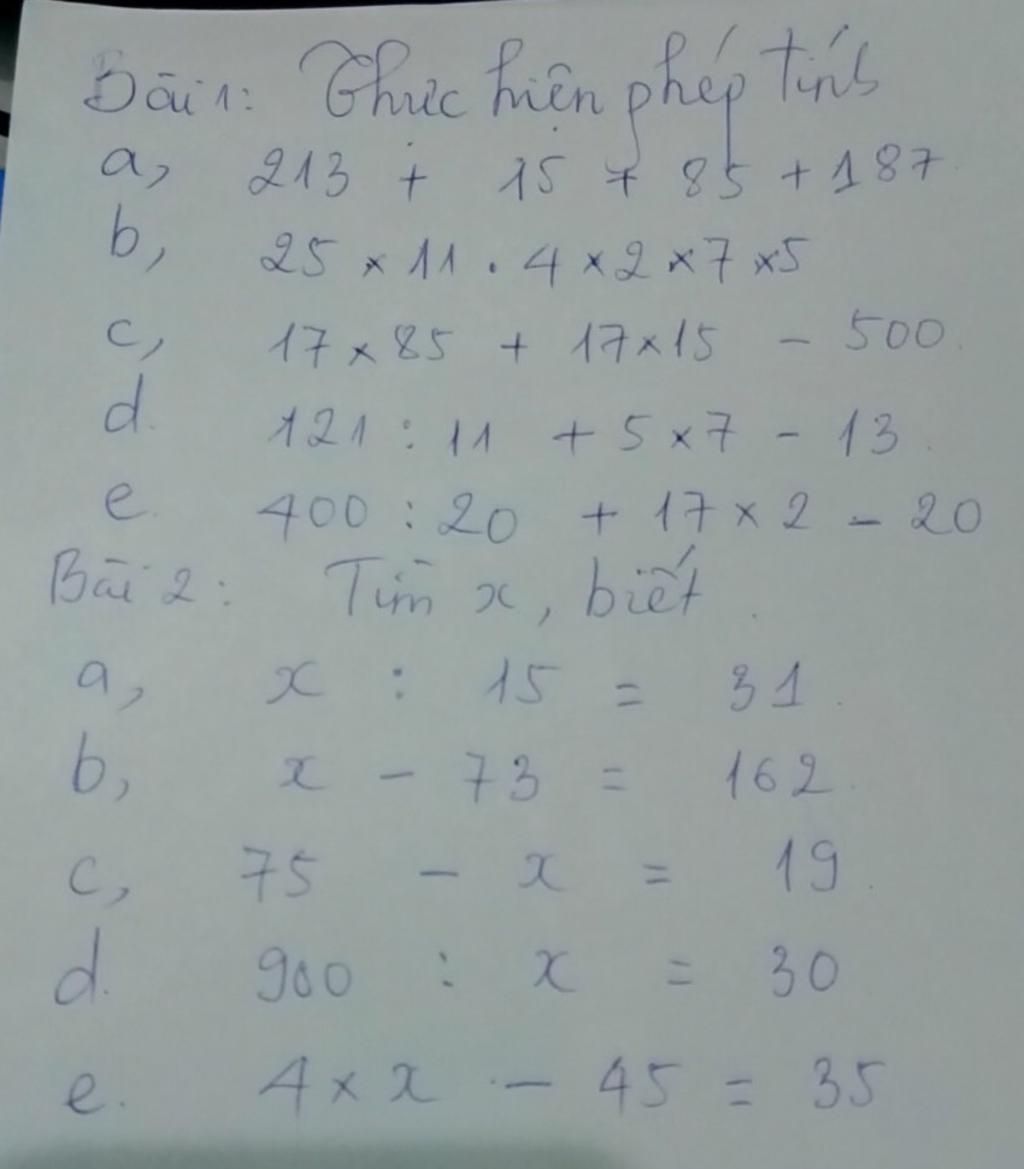 Bài 1: Thực hiện phép tính
a, 213 + 15 + 85 + 187
b, 25 × 11 . 4 × 2 × 7 × 5
c, 17 × 85 + 17 × 15 - 500.
d. 121 : 11 + 5 × 7 - 13.
e. 400 : 20 + 17 × 2 - 20
Bài 2: Tìm x, biết.
a, x : 15 = 31.
b, x - 73 = 162.
c, 75 - x = 19.
d. 900 : x = 30
e. 4 × x - 45 = 35